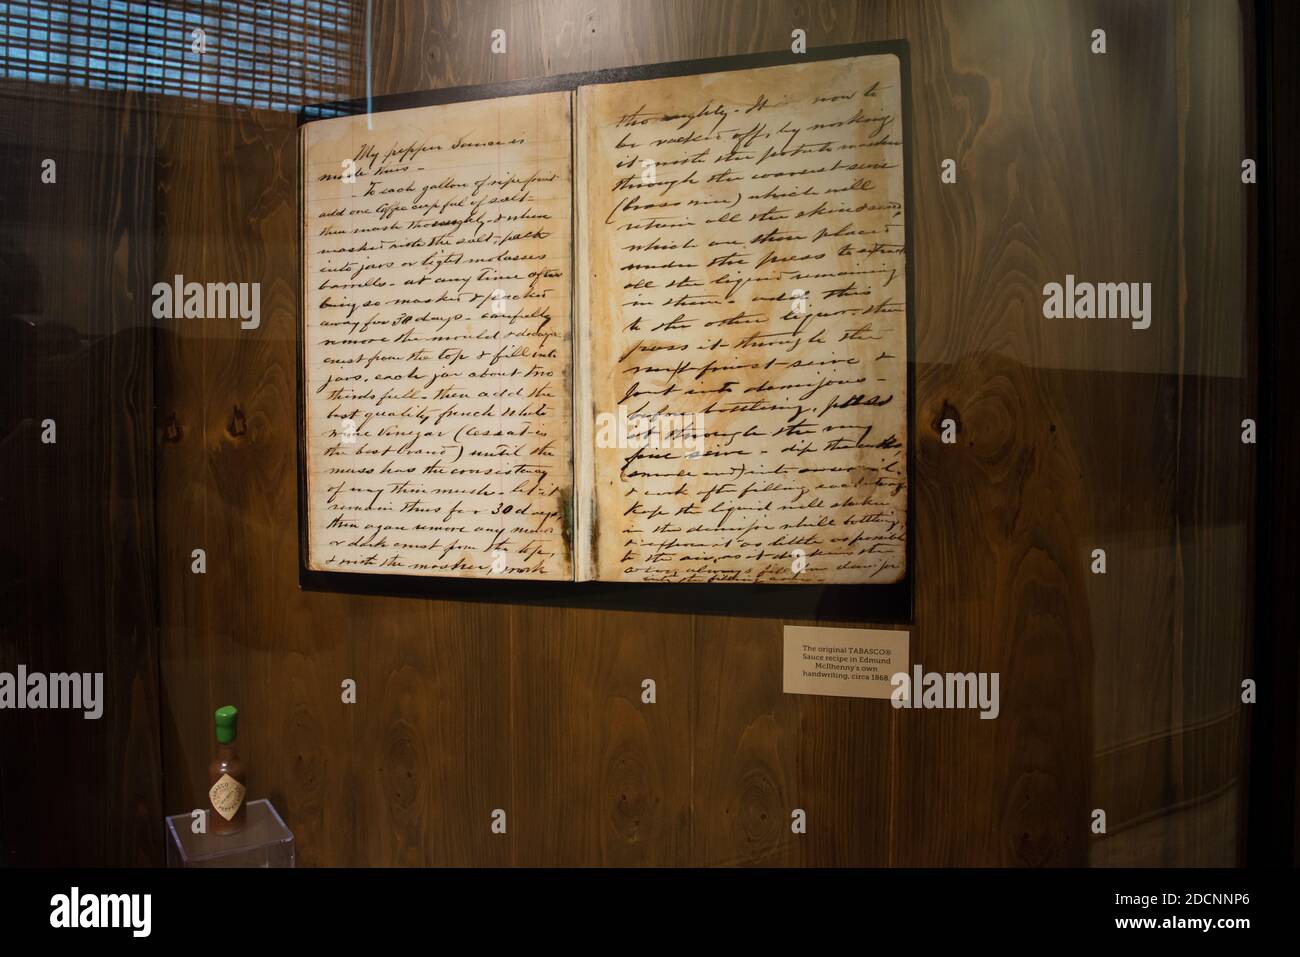 My pepper Sauce is
made thus -
- To each gallon of ripe fruit
add one Coffee cup ful of salt -
then mash thoroughly - & when
mashed with the salt, pack
into jars or tight molasses
barrells - at any time after
being so mashed & packed
away for 30 days - carefully
remove the mould &
crust from the top & fill into
jars, each jar about two
thirds full - then add the
best quality french White
Wine Vinegar (Cessat is
the best brand) until the
mass has the consistency
of very thin mush - let it
remain thus for 30 days,
then again remove any
or dark crust from the top,
& with the masher, work
thoroughly - It now to
be off, by working
it with the potato masher
through the coarsest seive
(brass wire) which will
retain all the skin & seed,
which are then placed
under the press to extract
all the liquid remaining
in them - add this
to the other liquor, then
pass it through the
next finest seive &
put into demijons -
before bottling, pass
it through the very
fine seive - dip the corks,
(small end) into sweet oil -
& cork after filling each
Keep the liquid well shaken
in the demijon while bottling,
& expose it as little as possible
to the air, as it darkens the
color, always fill the demijon
into the
The original TABASCO®
Sauce recipe in Edmund
McIlhenny's own
handwriting, circa 1868.
TABASCO
alamy
alamy
alamy
alamy
alamy
alamy
alamy
a
a
a
a
a
a
a
a
a
a
alamy
Image ID: 2DCNNP6
www.alamy.com